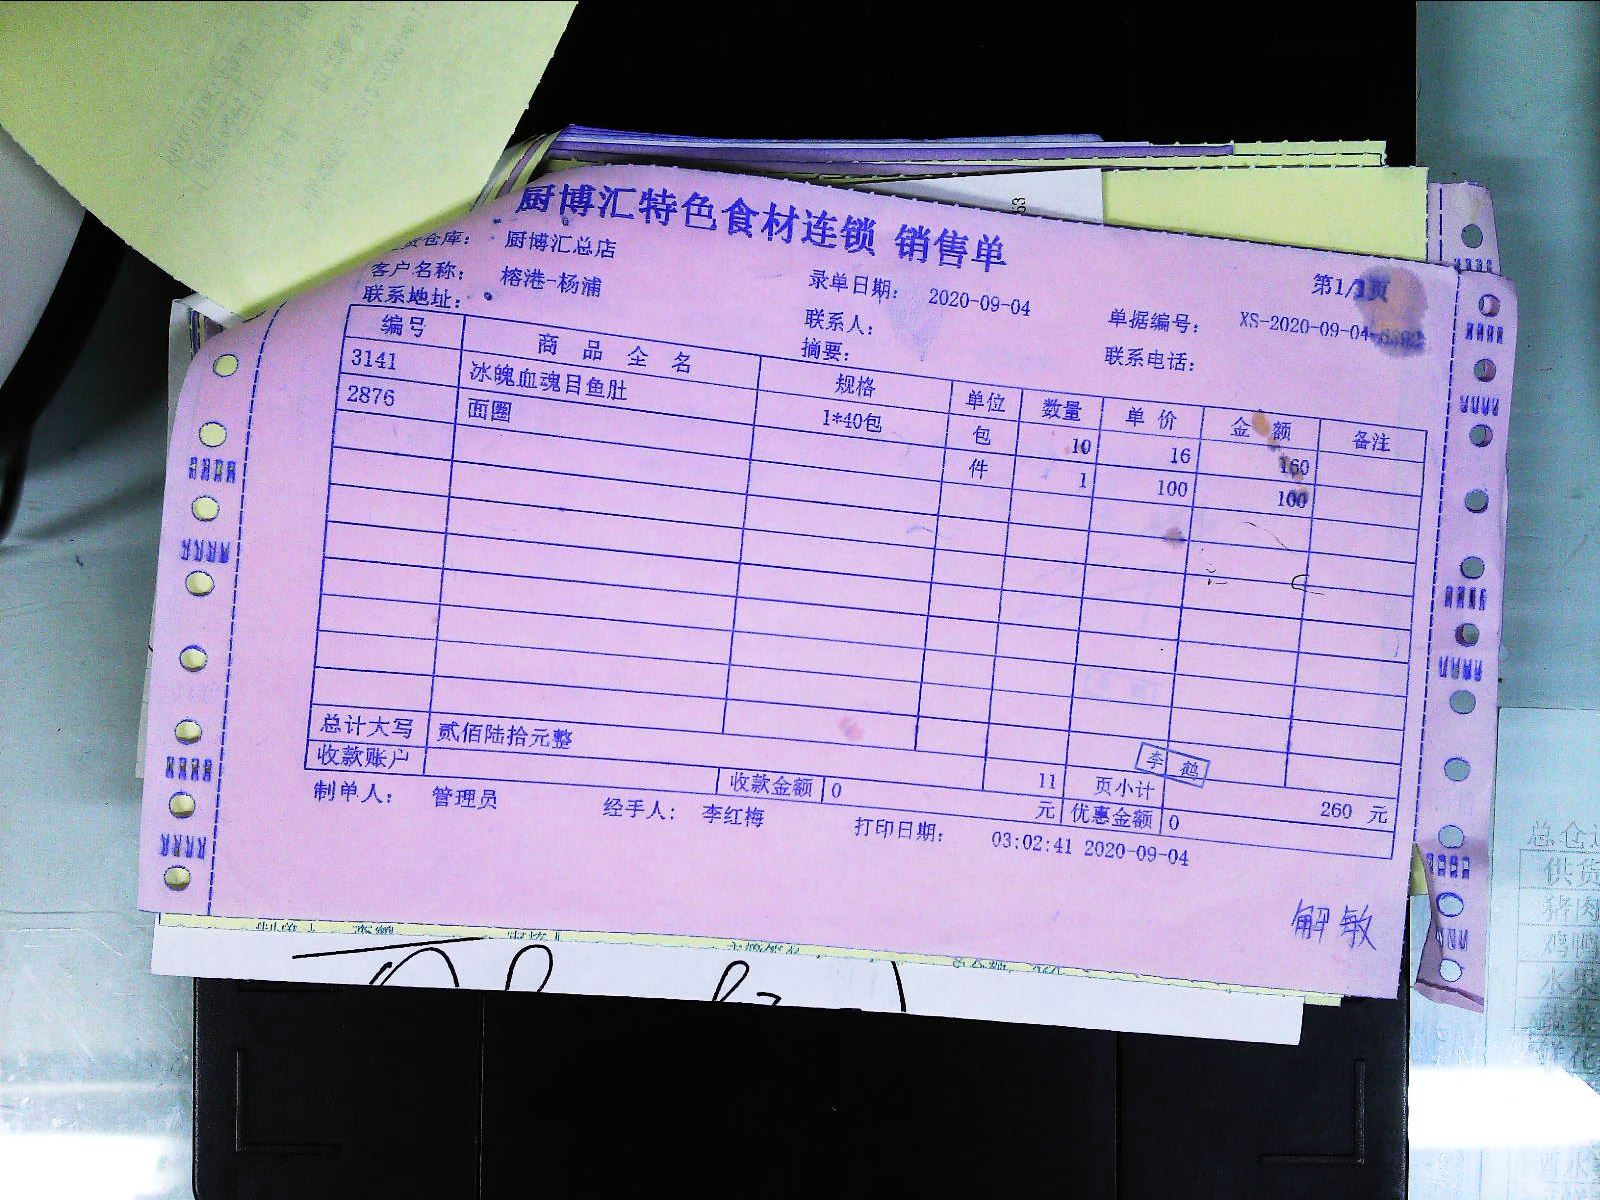 厨博汇特色食材连锁 销售单
仓库： 厨博汇总店
第1/1页
客户名称： 榕港-杨浦 录单日期： 2020-09-04 单据编号： XS-2020-09-04-
联系地址： 联系人： 联系电话：
摘要：
编号 商品全名 规格 单位 数量 单价 金额 备注
3141 冰魄血魂目鱼肚 包 10 16 160
2876 面圈 1*40包 件 1 100 100
总计大写 贰佰陆拾元整 11 页小计 260 元
收款账户 收款金额 0 元 优惠金额 0
李鹤
制单人： 管理员 经手人： 李红梅 打印日期： 03:02:41 2020-09-04
解敏
53
总仓
供货
猪肉
鸡鸭
水果
蔬菜